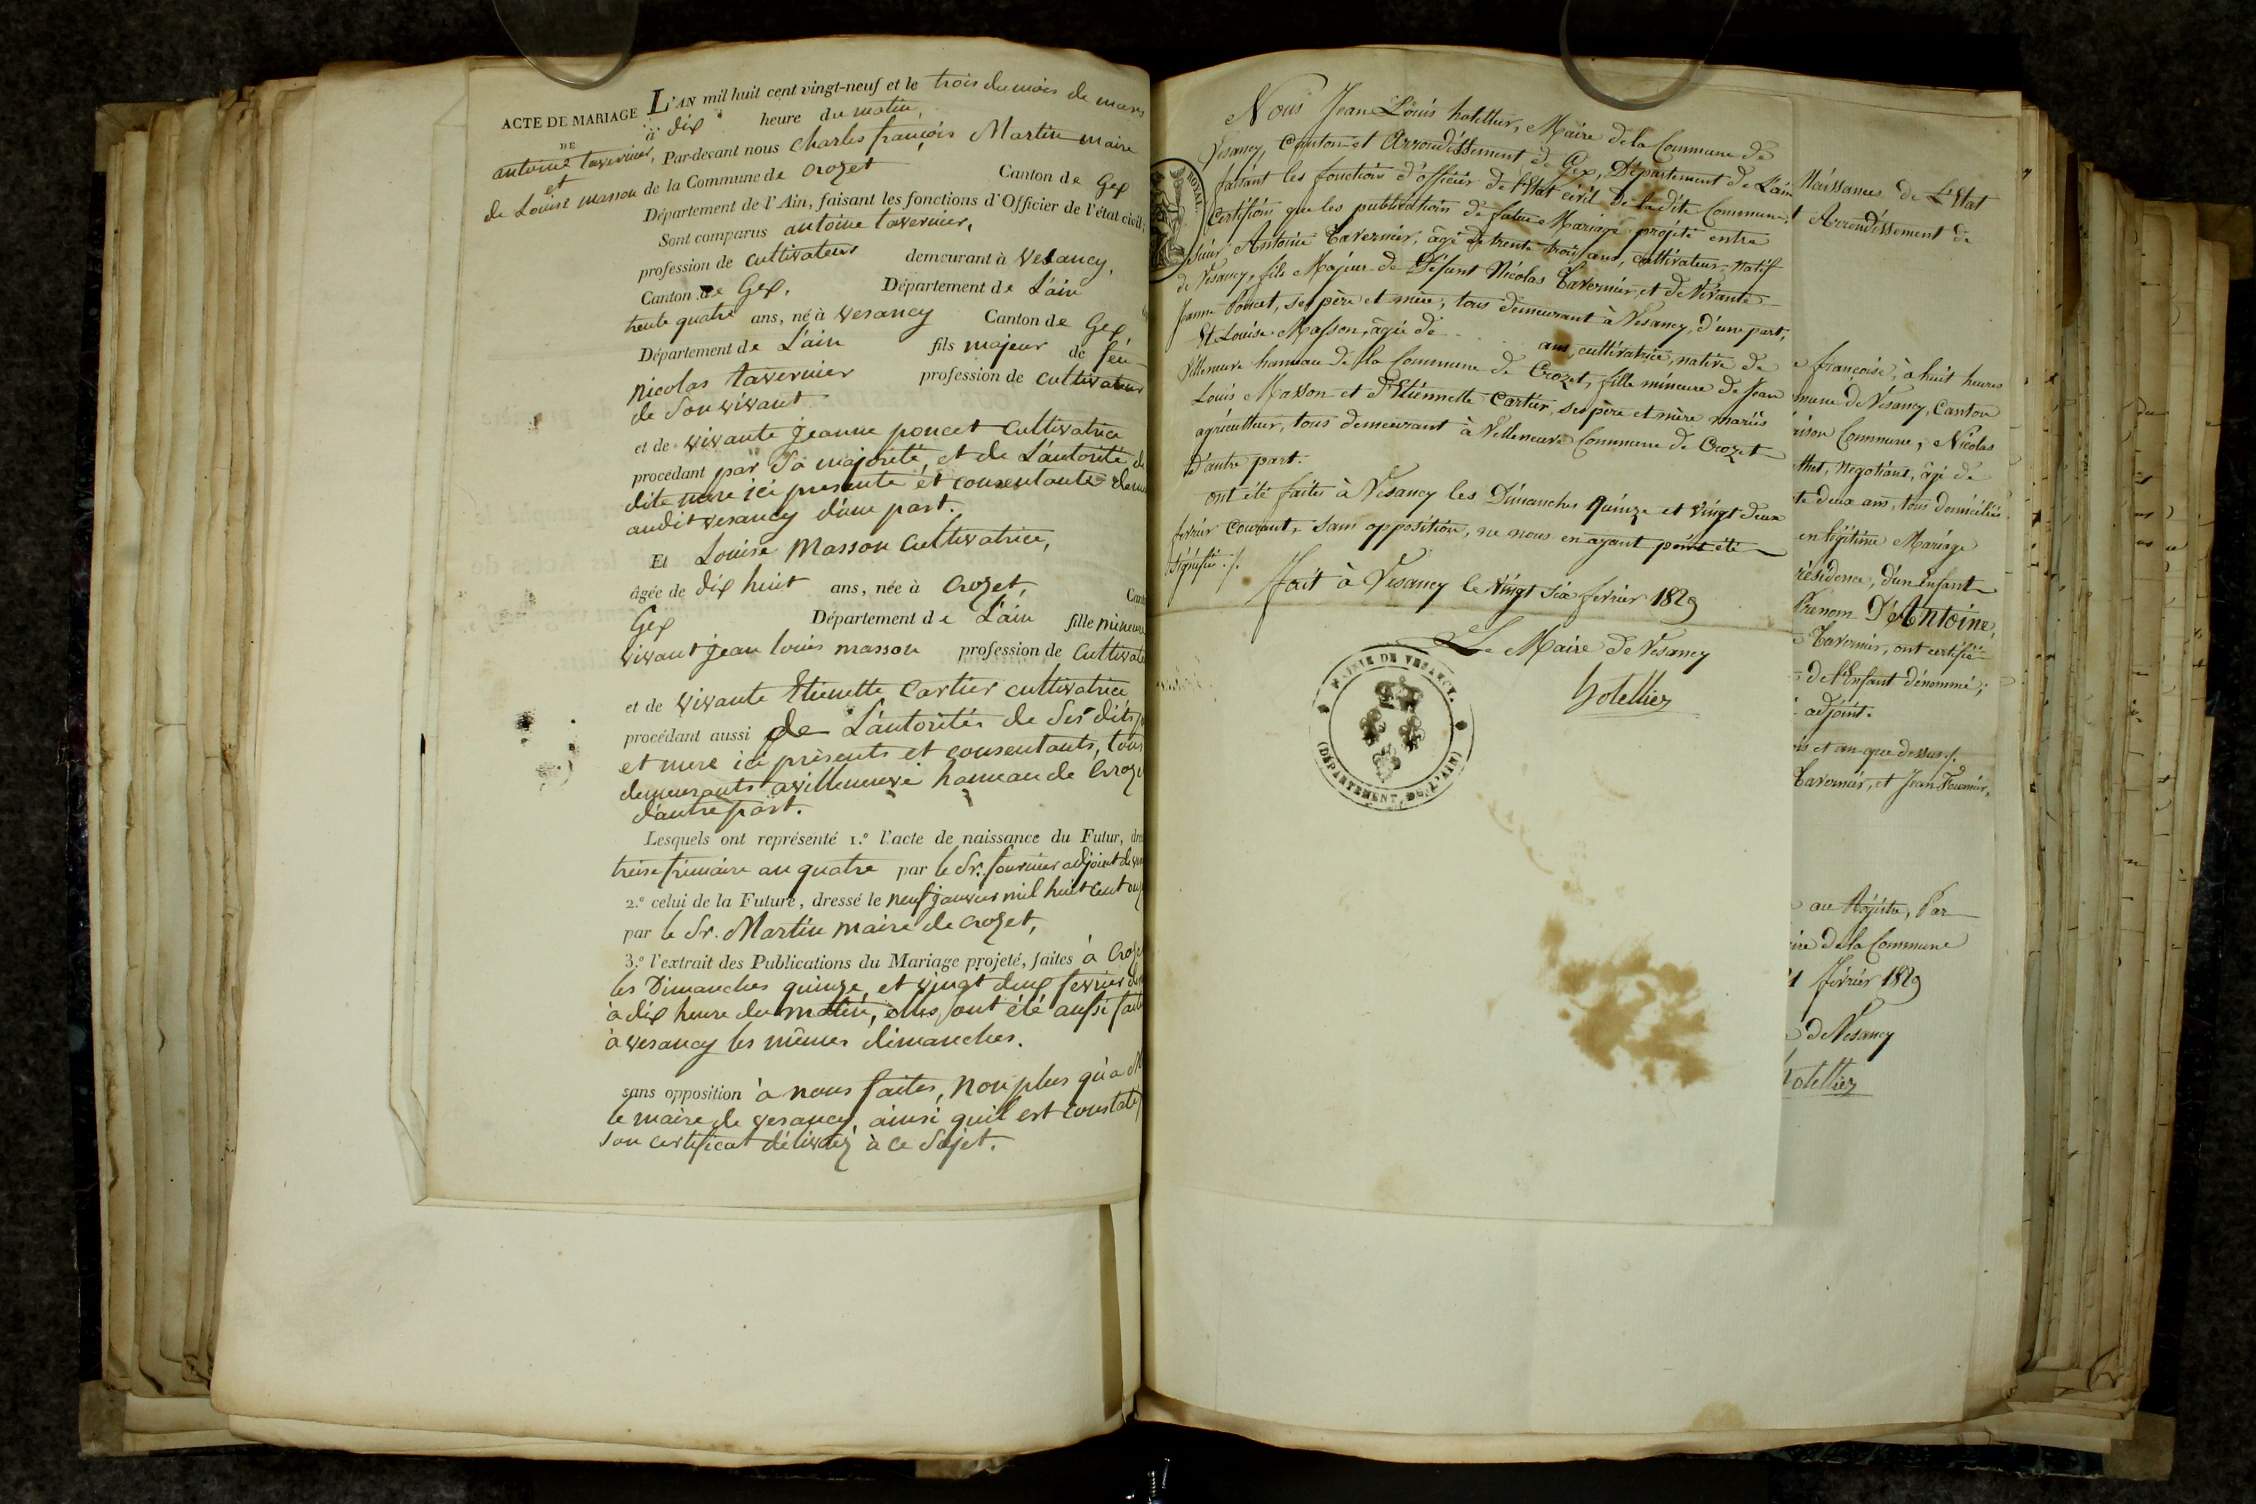 ACTE DE MARIAGE
DE
antoine tavernier,
et
de Louise masson
L'AN mil huit cent vingt-neuf et le trois du mois de mars
à dix heure du matin,
Par-devant nous charles françois Martin maire
de la Commune de crozet Canton de Gex
Département de l'Ain, faisant les fonctions d'Officier de l'état civil;
Sont comparus antoine tavernier,
profession de cultivateur demeurant à Vesancy,
Canton de Gex, Département de L'ain
trente quatre ans, né à vesancy Canton de Gex
Département de L'ain fils majeur de feu
nicolas tavernier profession de cultivateur
de Son vivant
et de vivante jeanne poncet cultivatrice
procédant par sa majorité, et de L'autorité de
dite mere ici presente et consentante
audit vesancy d'une part.
Et Louise Masson cultivatrice,
âgée de dix huit ans, née à Crozet,
Gex Département de L'ain fille mineure
vivant jean louis masson profession de Cultivate
et de vivante Etienette Cartier cultivatrice
procédant aussi de L'autorités de Ses dits
et mere ici présents et consentants, tous
demeurants a villeneuve hameau de Croze
d'autre part.
Lesquels ont représenté 1.º l'acte de naissance du Futur, dre
treise frimaire an quatre par le Sr. fournier adjoint de
2.º celui de la Future, dressé le neuf janvier mil huit cent on
par le Sr. Martin maire de crozet,
3.º l'extrait des Publications du Mariage projeté, faites à Croz
les Dimanches quinze et vingt deux fevrier
à dix heure du matin, elles ont été aussi fait
à vesancy les mêmes dimanches.
sans opposition à nous faites, non plus qu'à M
le maire de vesancy, ainsi qu'il est constaté
son certificat délivréz à ce Sujet.
ROYAL.
Nous Jean Louis hotellier, Maire de la Commune de
Vesancy, Canton et Arrondissement de Gex, Département de L'ain
faisant les fonctions d'officier de l'Etat civil de la dite Commune,
Certifions que les publications de futur Mariage projeté entre
Sieur Antoine Tavernier, âgé de trente trois ans, cultivateur natif
de Vesancy, fils Majeur de Défunt Nicolas Tavernier, et de Vivante
Jeanne Poncet, ses père et mère, tous demeurant à Vesancy, d'une part,
Et Louise Masson, âgée de ans, cultivatrice, native de
Villeneuve hameau de la Commune de Crozet, fille mineure de Jean
Louis Masson et d'Etiennette Cartier, ses père et mère mariés
agriculteur, tous demeurant à Villeneuve Commune de Crozet
d'autre part.
ont été faites à Vesancy les Dimanches Quinze et vingt deux
fevrier courant, sans opposition, ne nous en ayant point été
signifié ./.
fait à Vesancy le vingt six fevrier 1829
Le Maire de Vesancy
hotellier
MAIRIE DE VESANCY.
(DÉPARTEMENT DE L'AIN)
Naissance de L'Etat
Arrondissement de
françoise, à huit heures
mune de Vesancy, Canton
aison Commune, Nicolas
thet, Négotiant, âgé de
te deux ans, tous domiciliés
en légitime Mariage
résidence, d'un enfant
Prenom D'Antoine,
Tavernier, ont certifié
de l'Enfant dénommé;
adjoint.
ois et an que dessus ./.
Tavernier, et Jean Fournier,
au Régistre, Par
ire de la Commune
21 février 1829
de Vesancy
hotellier